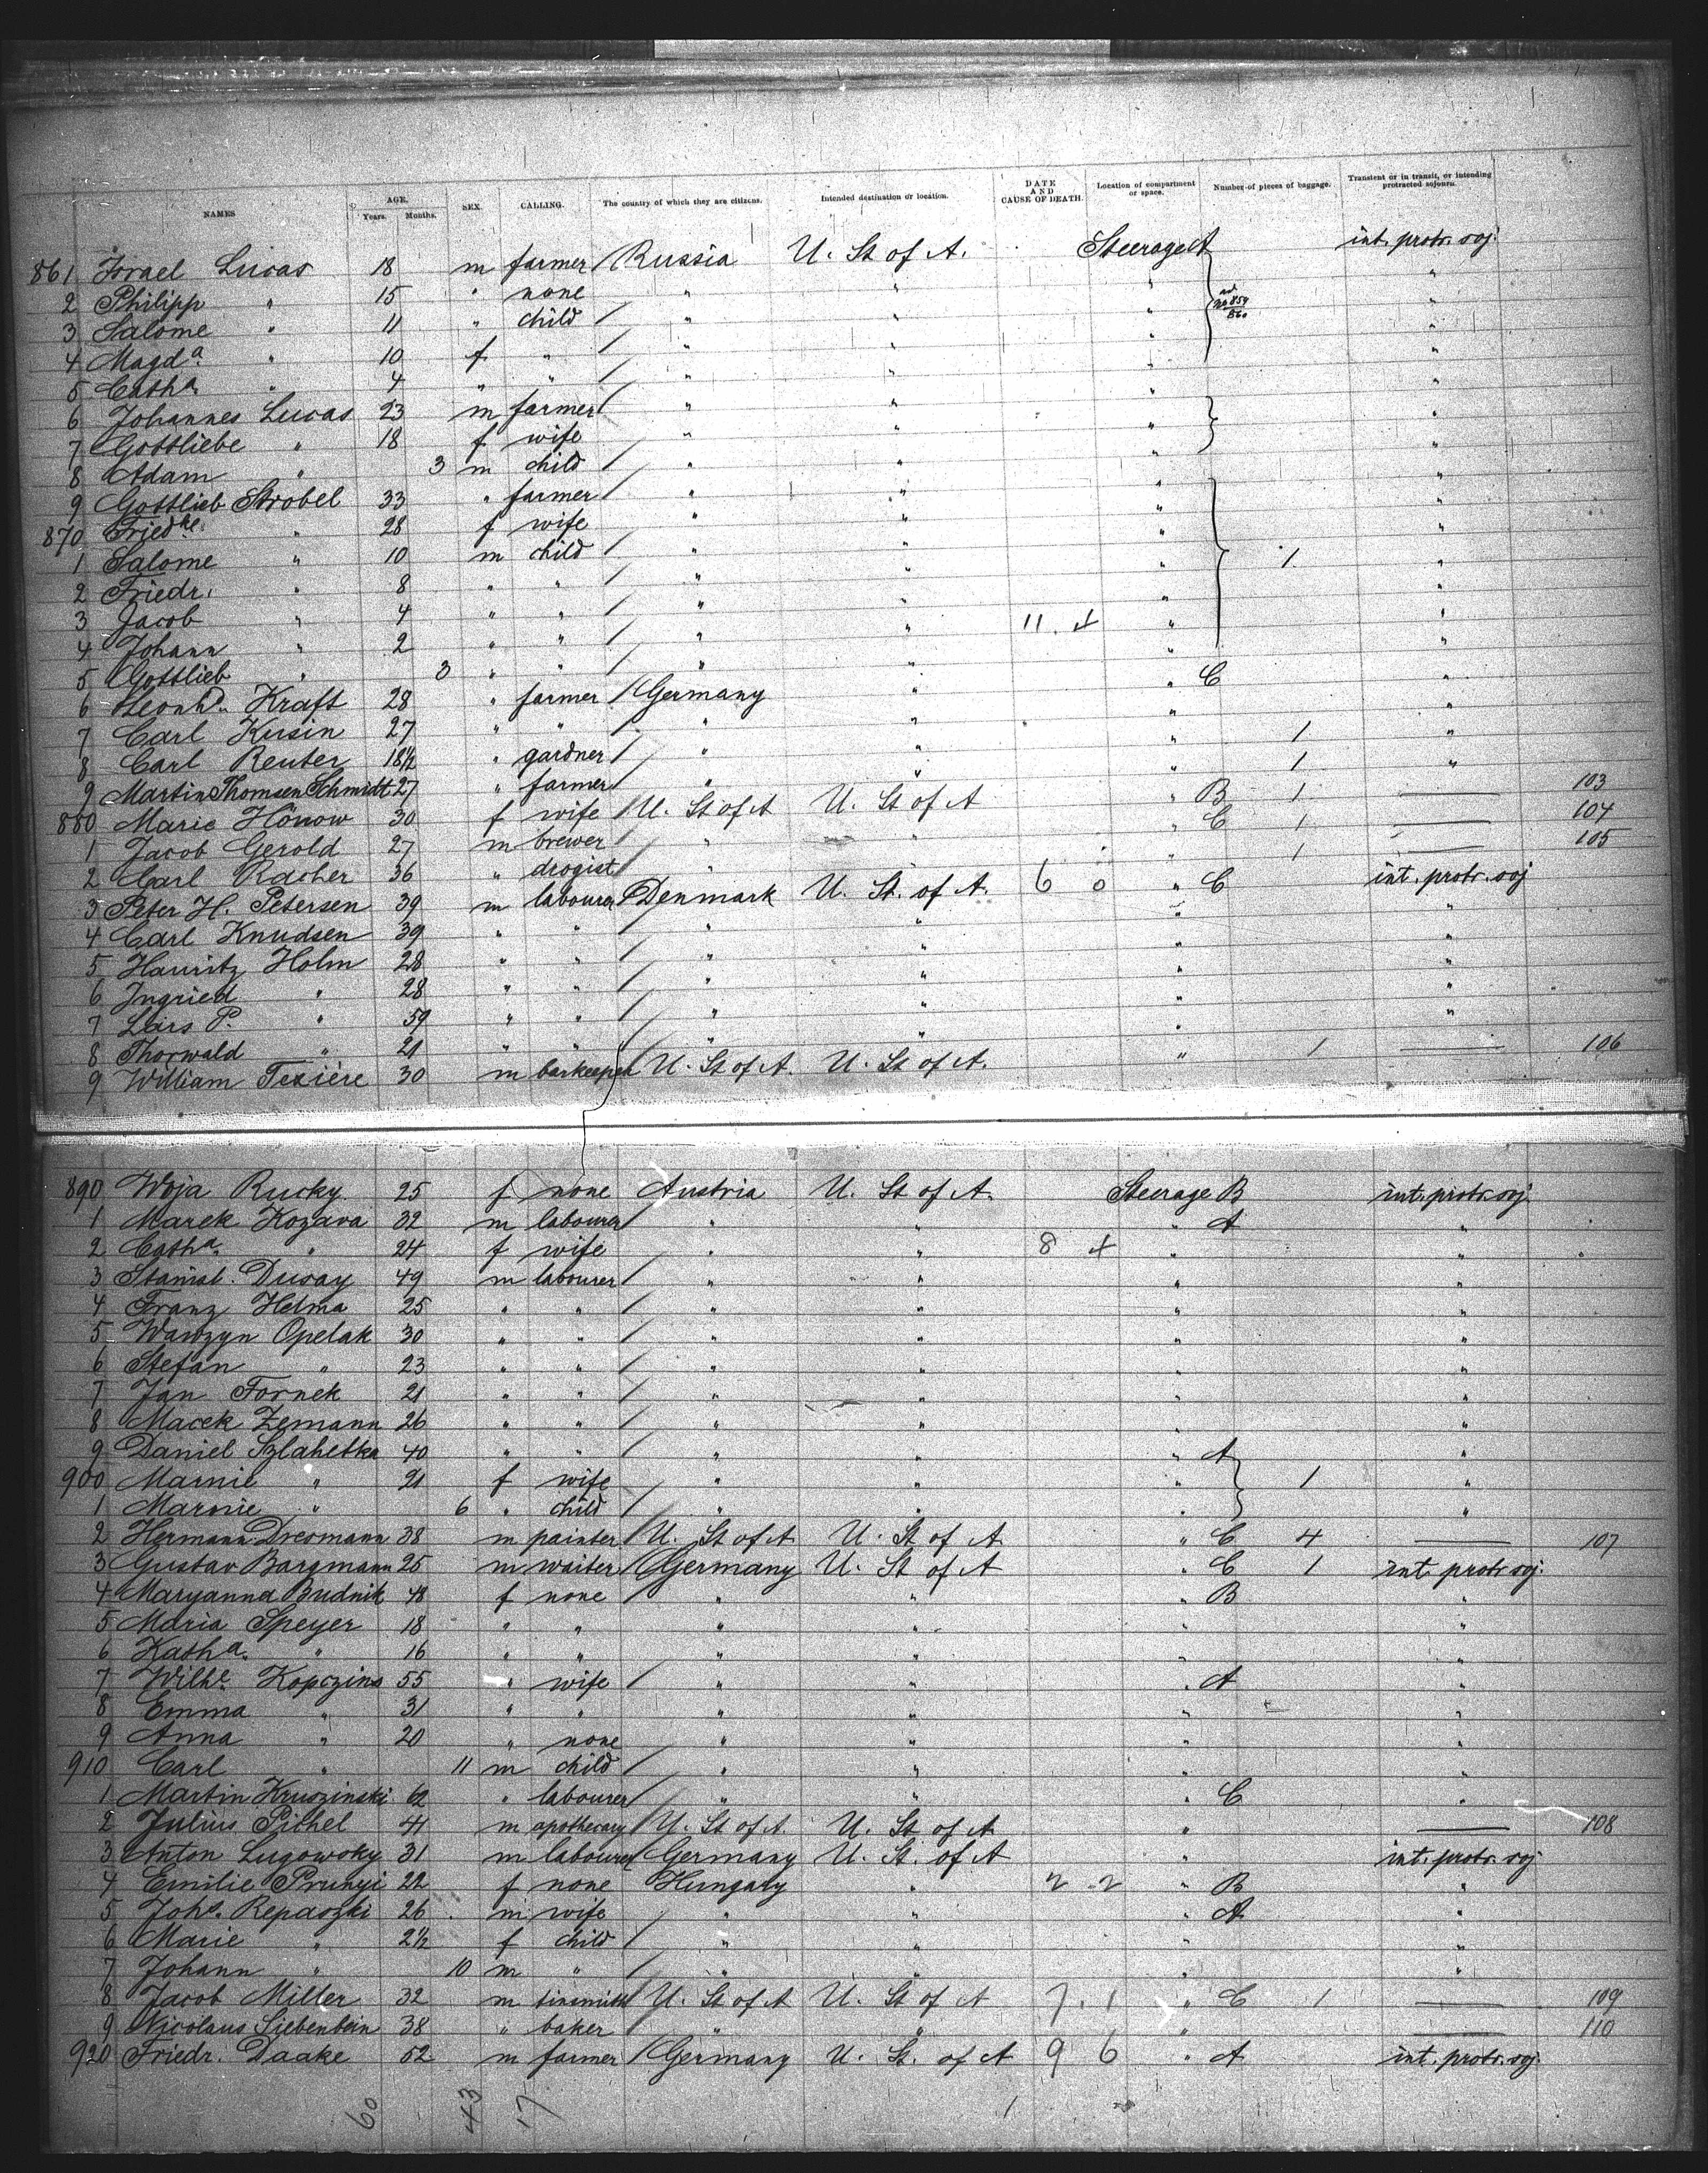 NAMES AGE. Years. Months. SEX. CALLING. The country of which they are citizens. Intended destination or location. DATE AND CAUSE OF DEATH. Location of compartment or space. Number of pieces of baggage. Transient or in transit, or intending protracted sojourn.
861 Israel Lucas 18 m farmer / Russia U. St of A. Steerage A int. protr. soj.
2 Philipp " 15 " none " " " ad No 859 860 "
3 Salome " 11 " child / " " " "
4 Magda. " 10 f " / " " " "
5 Catha. " 4 " " / " " " "
6 Johannes Lucas 23 m farmer / " " " "
7 Gottliebe " 18 f wife " " " "
8 Adam " 3 m child / " " " "
9 Gottlieb Strobel 33 " farmer / " " " "
870 Friedke. " 28 f wife " " " "
1 Salome " 10 m child / " " " 1 "
2 Friedr. " 8 " " / " " " "
3 Jacob " 4 " " / " " 11. + " "
4 Johann " 2 " " / " " " "
5 Gottlieb " 3 " " / " " " C "
6 Leonhd. Kraft 28 " farmer / Germany " " "
7 Carl Kusin 27 " " / " " " 1 "
8 Carl Reuter 18½ " gardner / " " " 1 "
9 Martin Thomsen Schmidt 27 " farmer / " " B 1 — 103
880 Marie Hönow 30 f wife / U. St of A U. St of A " C 1 — 104
1 Jacob Gerold 27 m brewer / " " " 1 — 105
2 Carl Racher 36 " drogist / 6 0 " C int. protr. soj
3 Peter H. Petersen 39 m labourer / Denmark U. St. of A. " "
4 Carl Knudsen 39 " " / " " " "
5 Hauritz Holm 28 " " / " " " "
6 Ingried " 28 " " / " " " "
7 Lars P. " 59 " " / " " "
8 Thorwald " 21 " " / " " " 1 — 106
9 William Texière 30 m barkeeper U. St of A. U. St of A.
890 Woja Rucky 25 f none Austria U. St of A. Steerage B int. protr. soj.
1 Marek Kozava 32 m labourer " " " A "
2 Catha. " 24 f wife " " 8 + " "
3 Stanisl. Dusay 49 m labourer / " " " "
4 Franz Helma 25 " " / " " " "
5 Wawzyn Opelak 30 " " / " " " "
6 Stefan " 23 " " / " " " "
7 Jan Fornek 21 " " / " " " "
8 Macek Zemann 26 " " / " " " "
9 Daniel Szlahetka 40 " " / " " " A "
900 Marnie " 21 f wife / " " " 1 "
1 Marnie " 6 " child / " " " "
2 Hermann Dresmann 38 m painter / U. St of A U. St of A " C 4 — 107
3 Gustav Bargmann 25 m waiter / Germany U. St of A " C 1 int. protr. soj.
4 Maryanna Budnik 48 f none / " " " B "
5 Maria Speyer 18 " " " " " "
6 Katha. " 16 " " " " " "
7 Wilhe. Kopczins 55 " wife / " " " A "
8 Emma " 31 " " " " " "
9 Anna " 20 " none " " " "
910 Carl " 11 m child / " " " "
1 Martin Kruszinski 62 " labourer / " " " C "
2 Julius Pichel 41 m apothecary / U. St of A. U. St of A " — 108
3 Anton Lugowsky 31 m labourer / Germany U. St. of A " int. protr. soj
4 Emilie Prunyi 22 f none Hungary " 2 2 " B "
5 Johe. Repaszki 26 m wife / " " " A "
6 Marie " 2½ f child / " " " "
7 Johann " 10 m " / " " " "
8 Jacob Miller 32 m tinsmith U. St of A U. St of A 7. 1 " C 1 — 109
9 Nicolaus Siebenbein 38 " baker / " " " — 110
920 Friedr. Daake 52 m farmer / Germany U. St. of A 9 6 " A int. protr. soj.
60 43 17